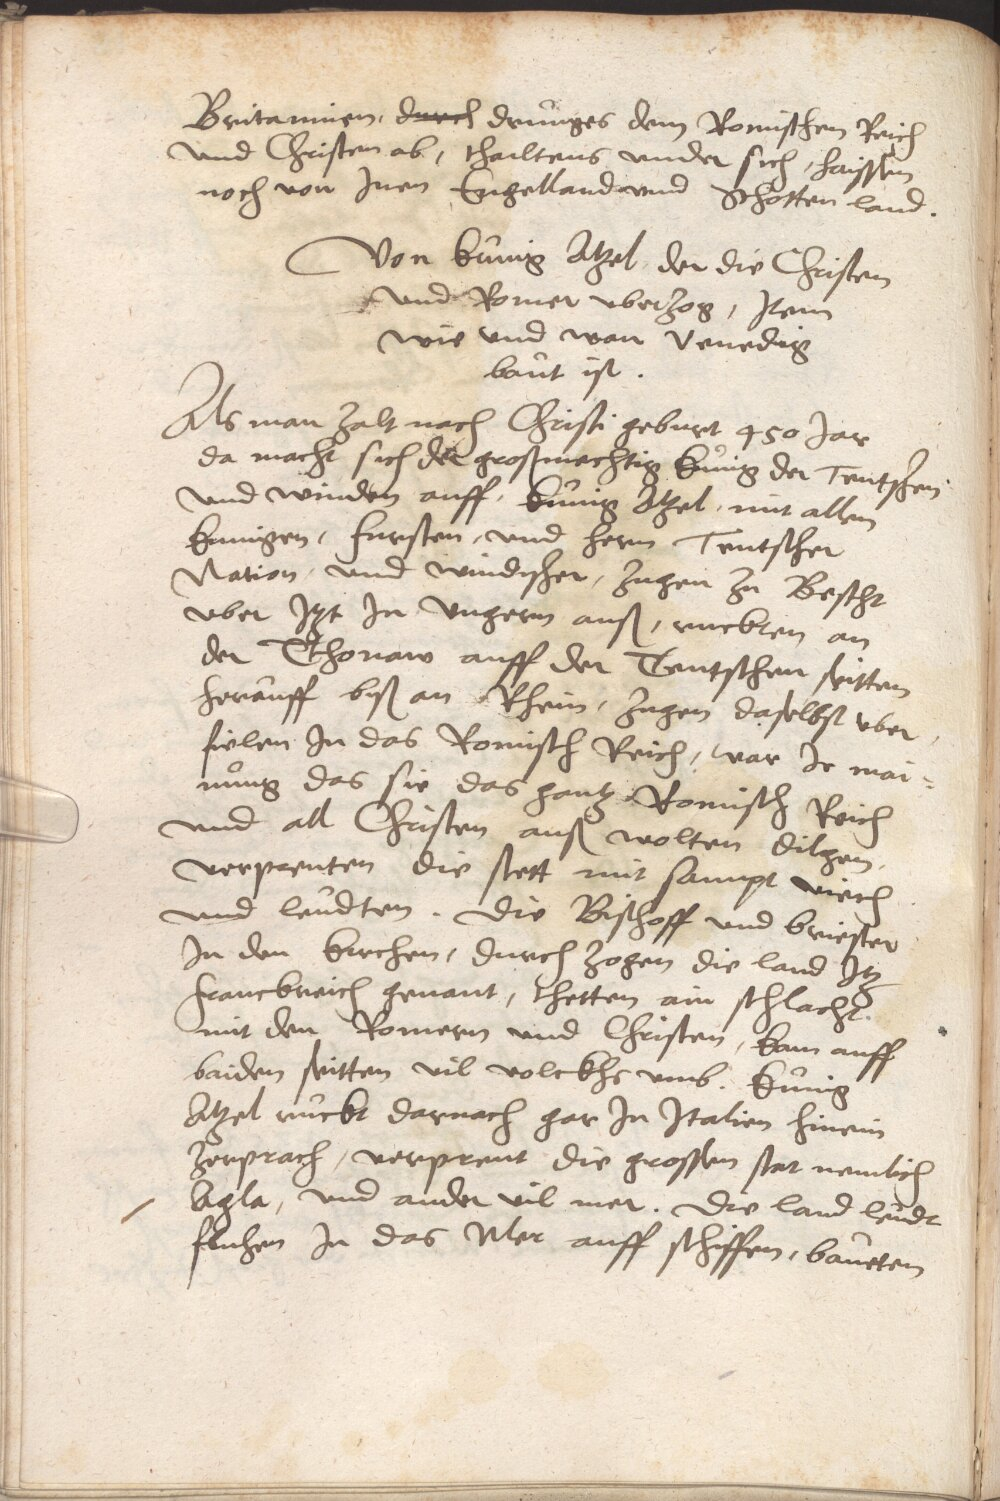 Britannien, durch drunges dem Romischen Reich
und Christen ab, thailtens under sich, haissen
noch von Inen Engelland und Schotten land.
Von künig Atzel der die Christen
und Romer uberzog, Item
wie und wan Venedig
baut ist.
Als man zalt nach Christi geburt 450 Jar
da macht sich der großmechtig künig der Teutschen
und winden auff, künig Atzel, mit allen
kunigen, fursten, und herrn Teutscher
Nation, und windischer, zugen zu Bescht
uber Itzt In Ungern auß, ruckten an
der Thonaw auff der Teutschen seitten
herauff biß an Rhein, zugen daselbst uber,
fielen In das Romisch Reich, war Ir mai-
nung das sie das gantz Romisch Reich
und all Christen auß wolten dilgen,
verprenten die stett mit sampt viech
und leudten. Die Bischoff und briester
In den kirchen, durch zogen die land Itz
franckreich genant, thetten ain schlacht
mit den Romern und Christen, kam auff
baiden seitten vil volckhs umb. künig
Atzel ruckt darnach gar In Italien hinein
zerprach, verprent die grossen stat nemlich
Agla, und ander vil mer. Die land leudt
fluhen In das Mer auff schiffen, baueten